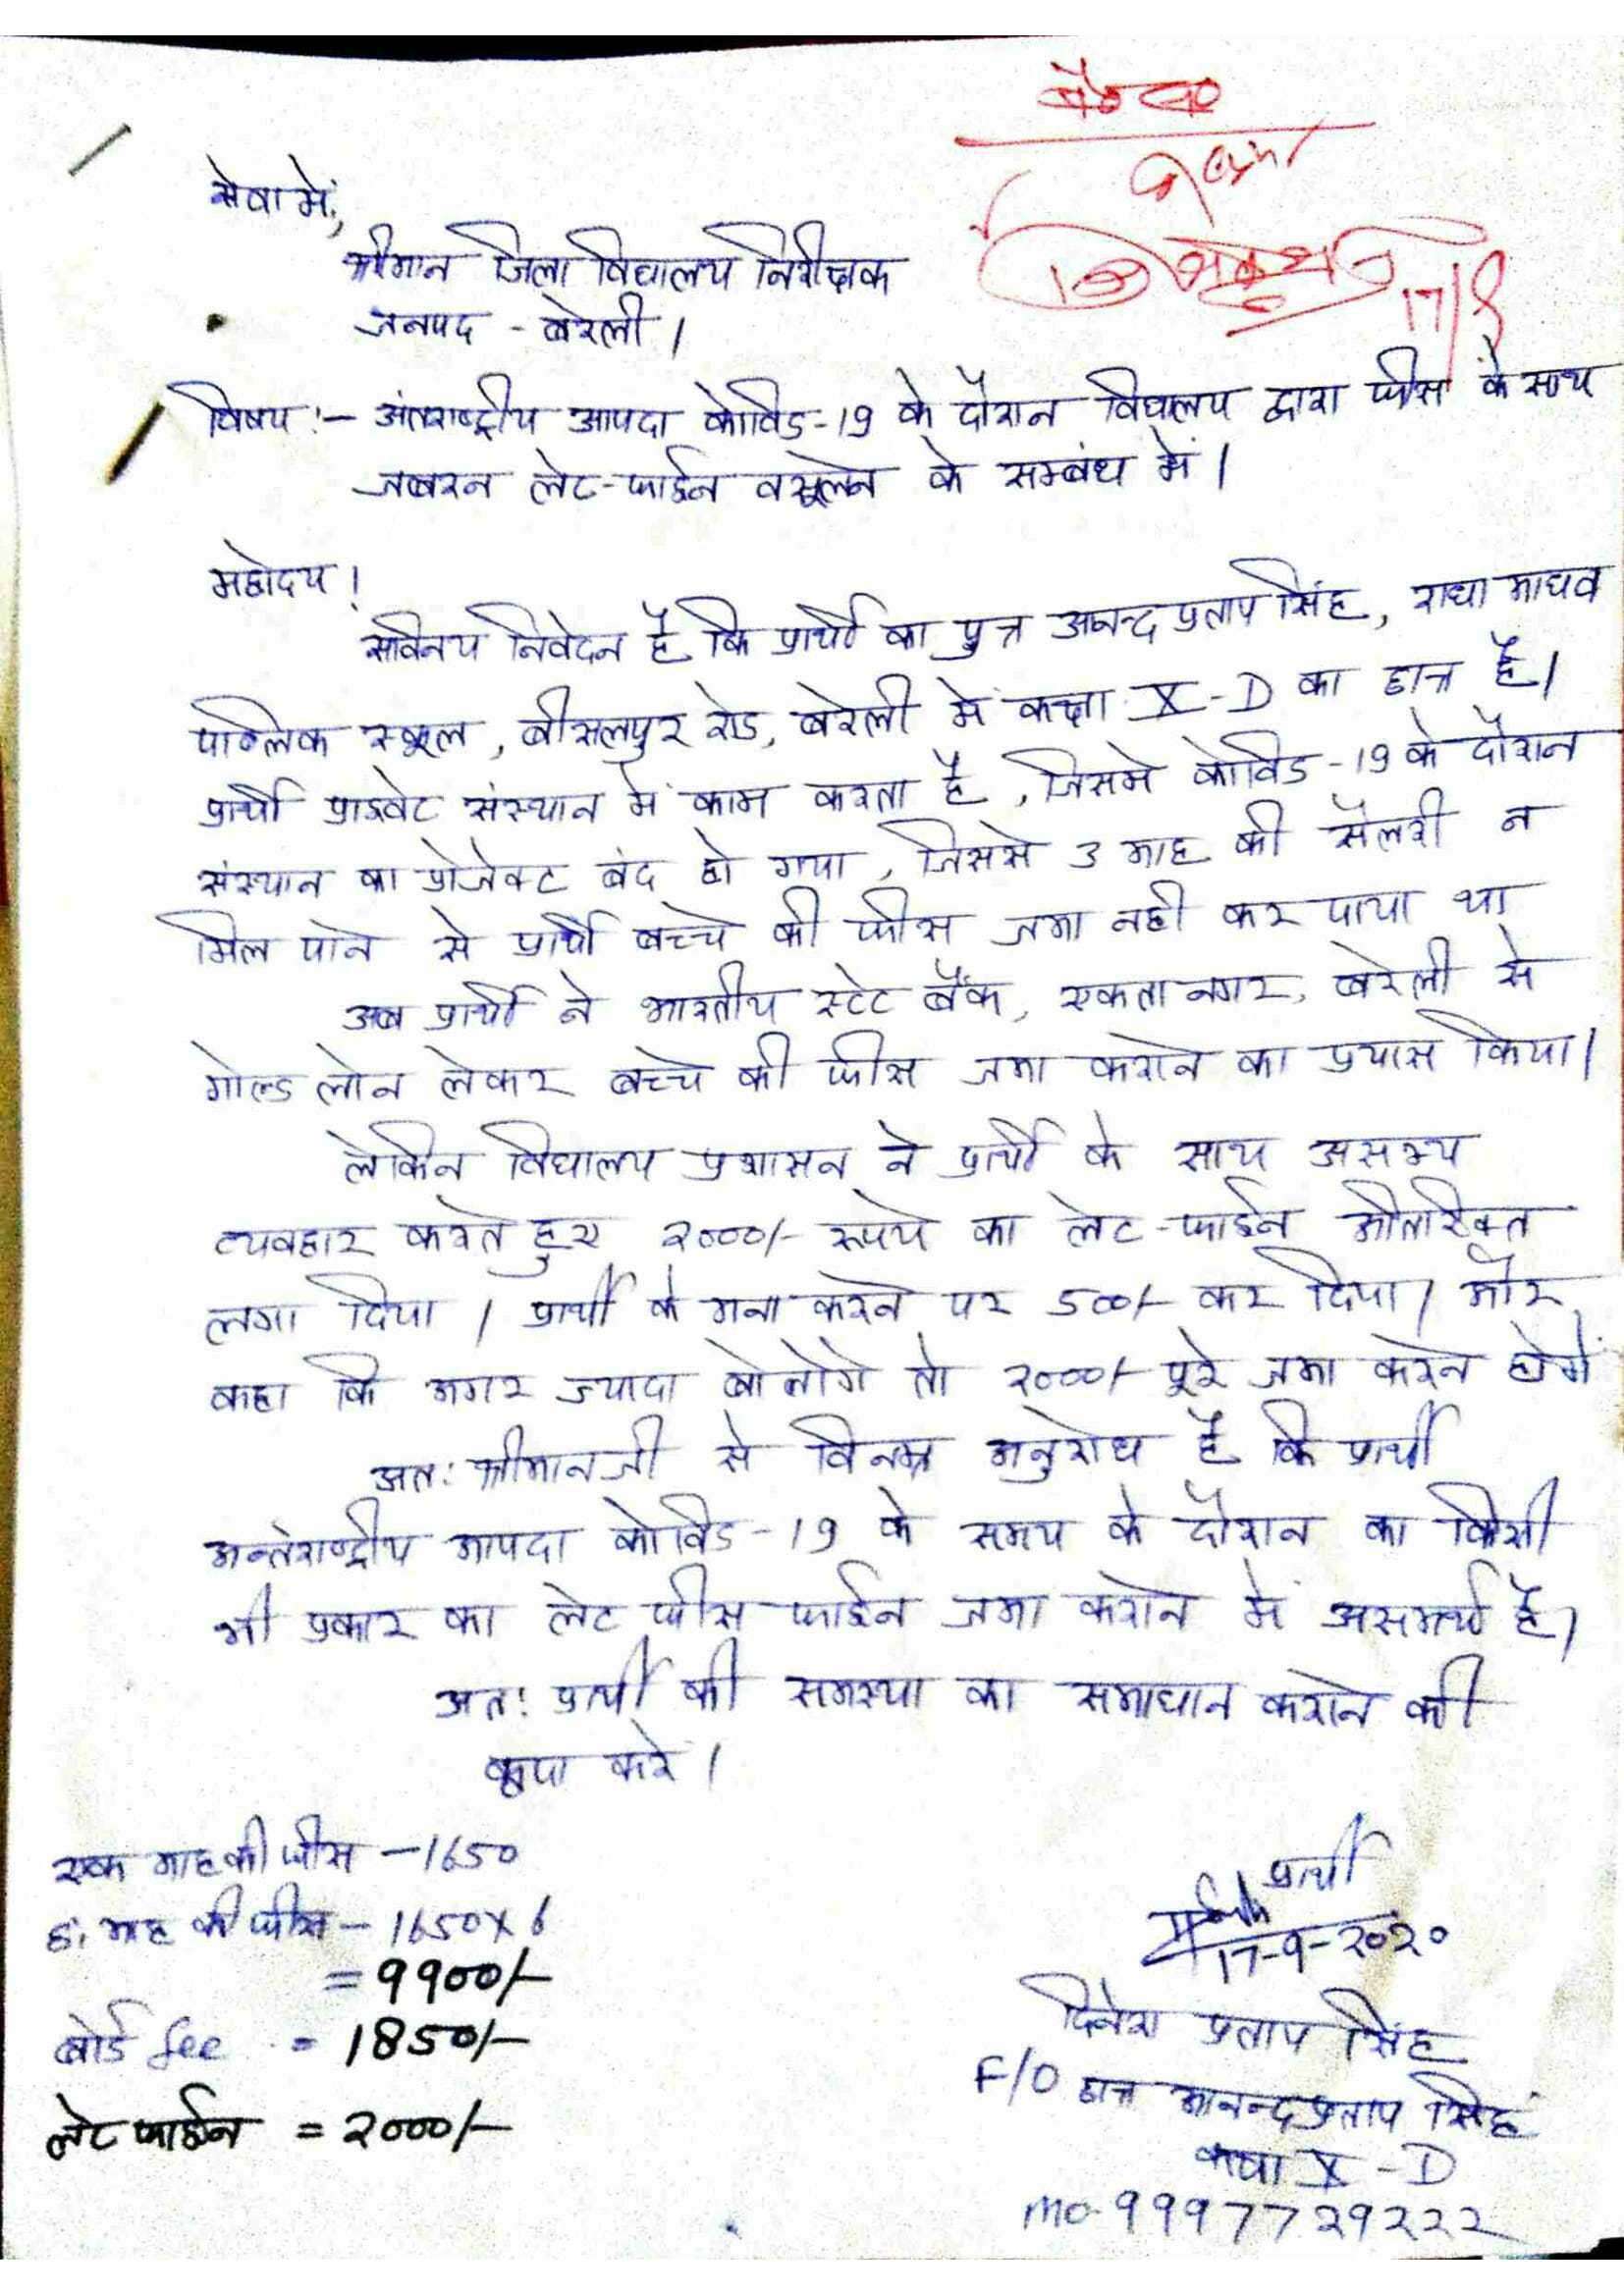 सेवा में,
श्रीमान जिला विद्यालय निरीक्षक
जनपद - बरेली।
17/9
विषय :- अंतराष्ट्रीय आपदा कोविड-19 के दौरान विद्यालय द्वारा फीस के साथ
जबरन लेट-फाईन वसूलने के सम्बंध में।
महोदय!
सविनय निवेदन है कि प्रार्थी का पुत्र आनन्द प्रताप सिंह, राधा माधव
पब्लिक स्कूल, बीसलपुर रोड, बरेली में कक्षा X-D का छात्र है।
प्रार्थी प्राइवेट संस्थान में काम करता है, जिसमे कोविड-19 के दौरान
संस्थान का प्रोजेक्ट बंद हो गया, जिससे 3 माह की सैलरी न
मिल पाने से प्रार्थी बच्चे की फीस जमा नही कर पाया था
अब प्रार्थी ने भारतीय स्टेट बैंक, एकता नगर, बरेली से
गोल्ड लोन लेकर बच्चे की फीस जमा कराने का प्रयास किया।
लेकिन विद्यालय प्रशासन ने प्रार्थी के साथ असभ्य
व्यवहार करते हुए २०००/- रूपये का लेट-फाईन अतिरिक्त
लगा दिया। प्रार्थी के मना करने पर 500/- कर दिया। और
कहा कि अगर ज्यादा बोलोगे तो २०००/- पूरे जमा करने होगें
अत: श्रीमानजी से विनम्र अनुरोध है कि प्रार्थी
अन्तंराष्ट्रीय आपदा कोविड-19 के समय के दौरान का किसी
भी प्रकार का लेट फीस फाईन जमा कराने में असमर्थ है।
अत: प्रार्थी की समस्या का समाधान कराने की
कृपा करे।
एक माह की फीस - 1650
छ: माह की फीस - 1650x6
= 9900/-
बोर्ड fee = 1850/-
लेट फाईन = २०००/-
प्रार्थी
17-9-२०२०
दिनेश प्रताप सिंह
F/O छात्र आनन्द प्रताप सिंह
कक्षा X-D
mo-9997729२२२